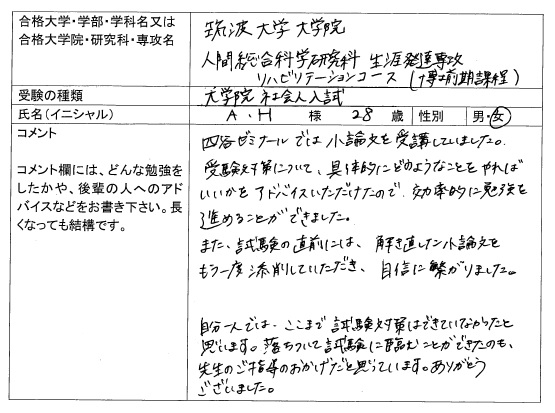 合格大学・学部・学科名又は
合格大学院・研究科・専攻名
筑波大学大学院
人間総合科学研究科 生涯発達専攻
リハビリテーションコース (博士前期課程)
受験の種類
大学院社会人入試
氏名(イニシャル)
A・H 様 28 歳 性別 男・女
コメント
コメント欄には、どんな勉強を
したかや、後輩の人へのアド
バイスなどをお書き下さい。長
くなっても結構です。
四谷ゼミナールでは小論文を受講していました。
受験対策について、具体的にどのようなことをやれば
いいかをアドバイスいただけたので、効率的に勉強を
進めることができました。
また、試験の直前には、解き直した小論文を
もう一度添削していただき、自信に繋がりました。
自分一人では、ここまで試験対策はできていなかったと
思います。落ちついて試験に臨むことができたのも、
先生のご指導のおかげだと思っています。ありがとう
ございました。